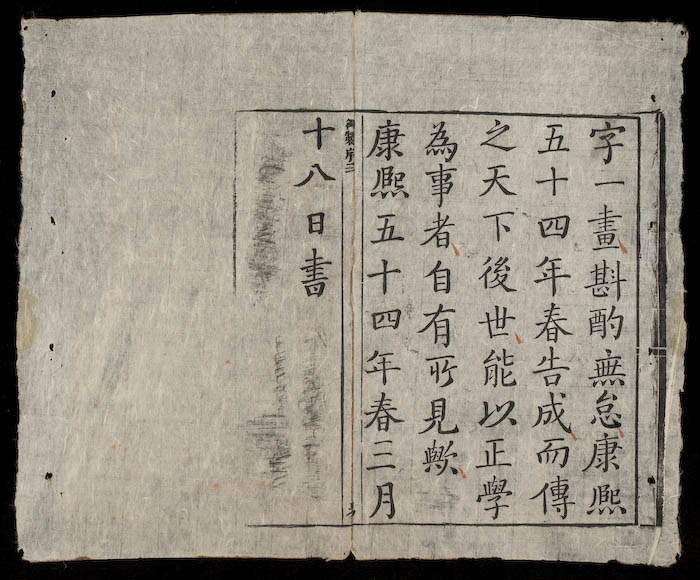 字一畫斟酌無怠康熙
五十四年春告成而傳
之天下後世能以正學
為事者自有所見歟
康熙五十四年春三月
御製序三
十八日書